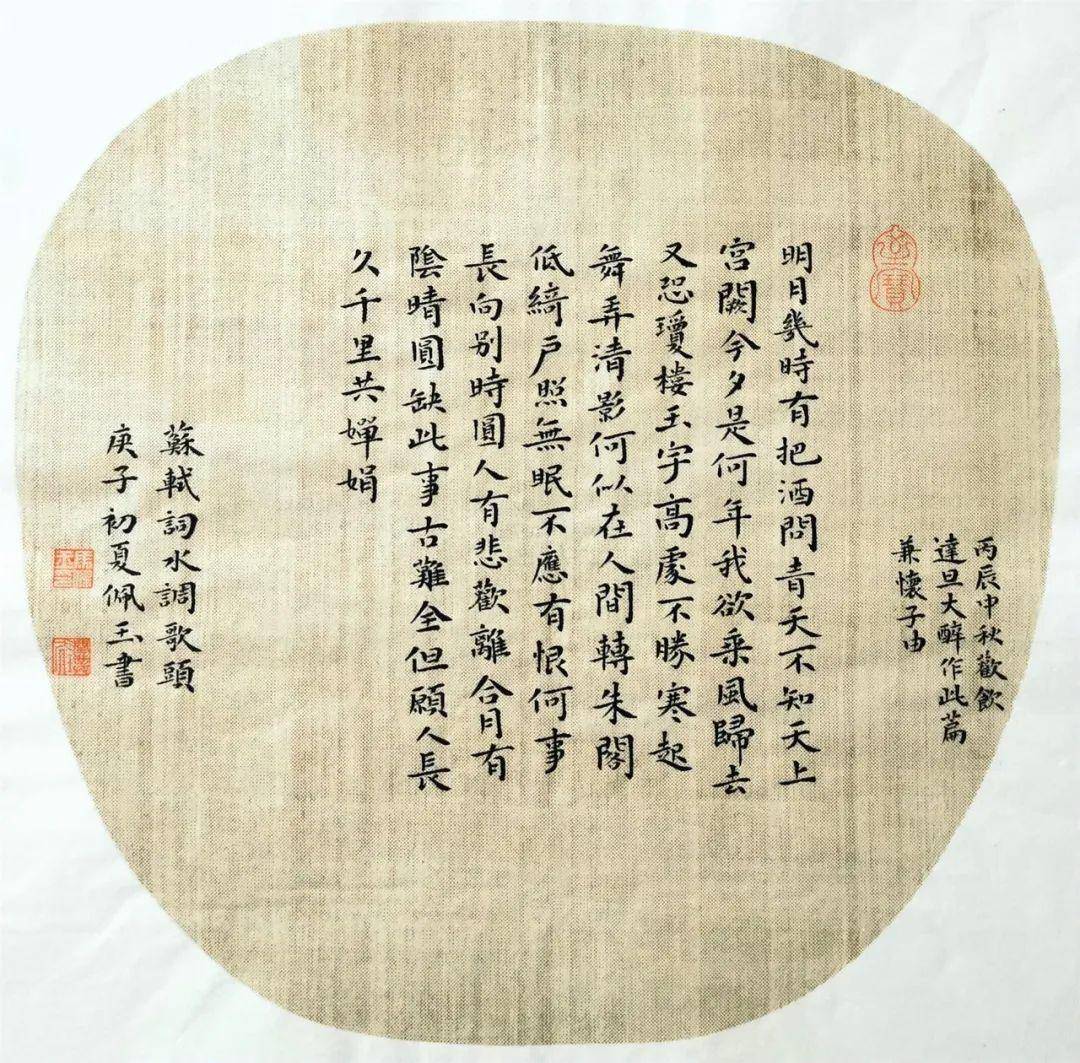 丙辰中秋歡飲
達旦大醉作此篇
兼懷子由
明月幾時有把酒問青天不知天上
宮闕今夕是何年我欲乘風歸去
又恐瓊樓玉宇高處不勝寒起
舞弄清影何似在人間轉朱閣
低綺戶照無眠不應有恨何事
長向別時圓人有悲歡離合月有
陰晴圓缺此事古難全但願人長
久千里共嬋娟
蘇軾詞水調歌頭
庚子初夏佩玉書